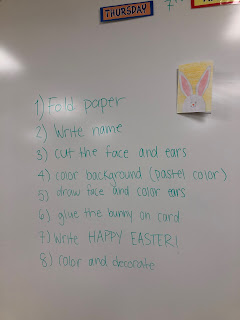 THURSDAY
1) Fold paper
2) Write name
3) cut the face and ears
4) color background (pastel color)
5) draw face and color ears
6) glue the bunny on card
7) Write HAPPY EASTER!
8) color and decorate